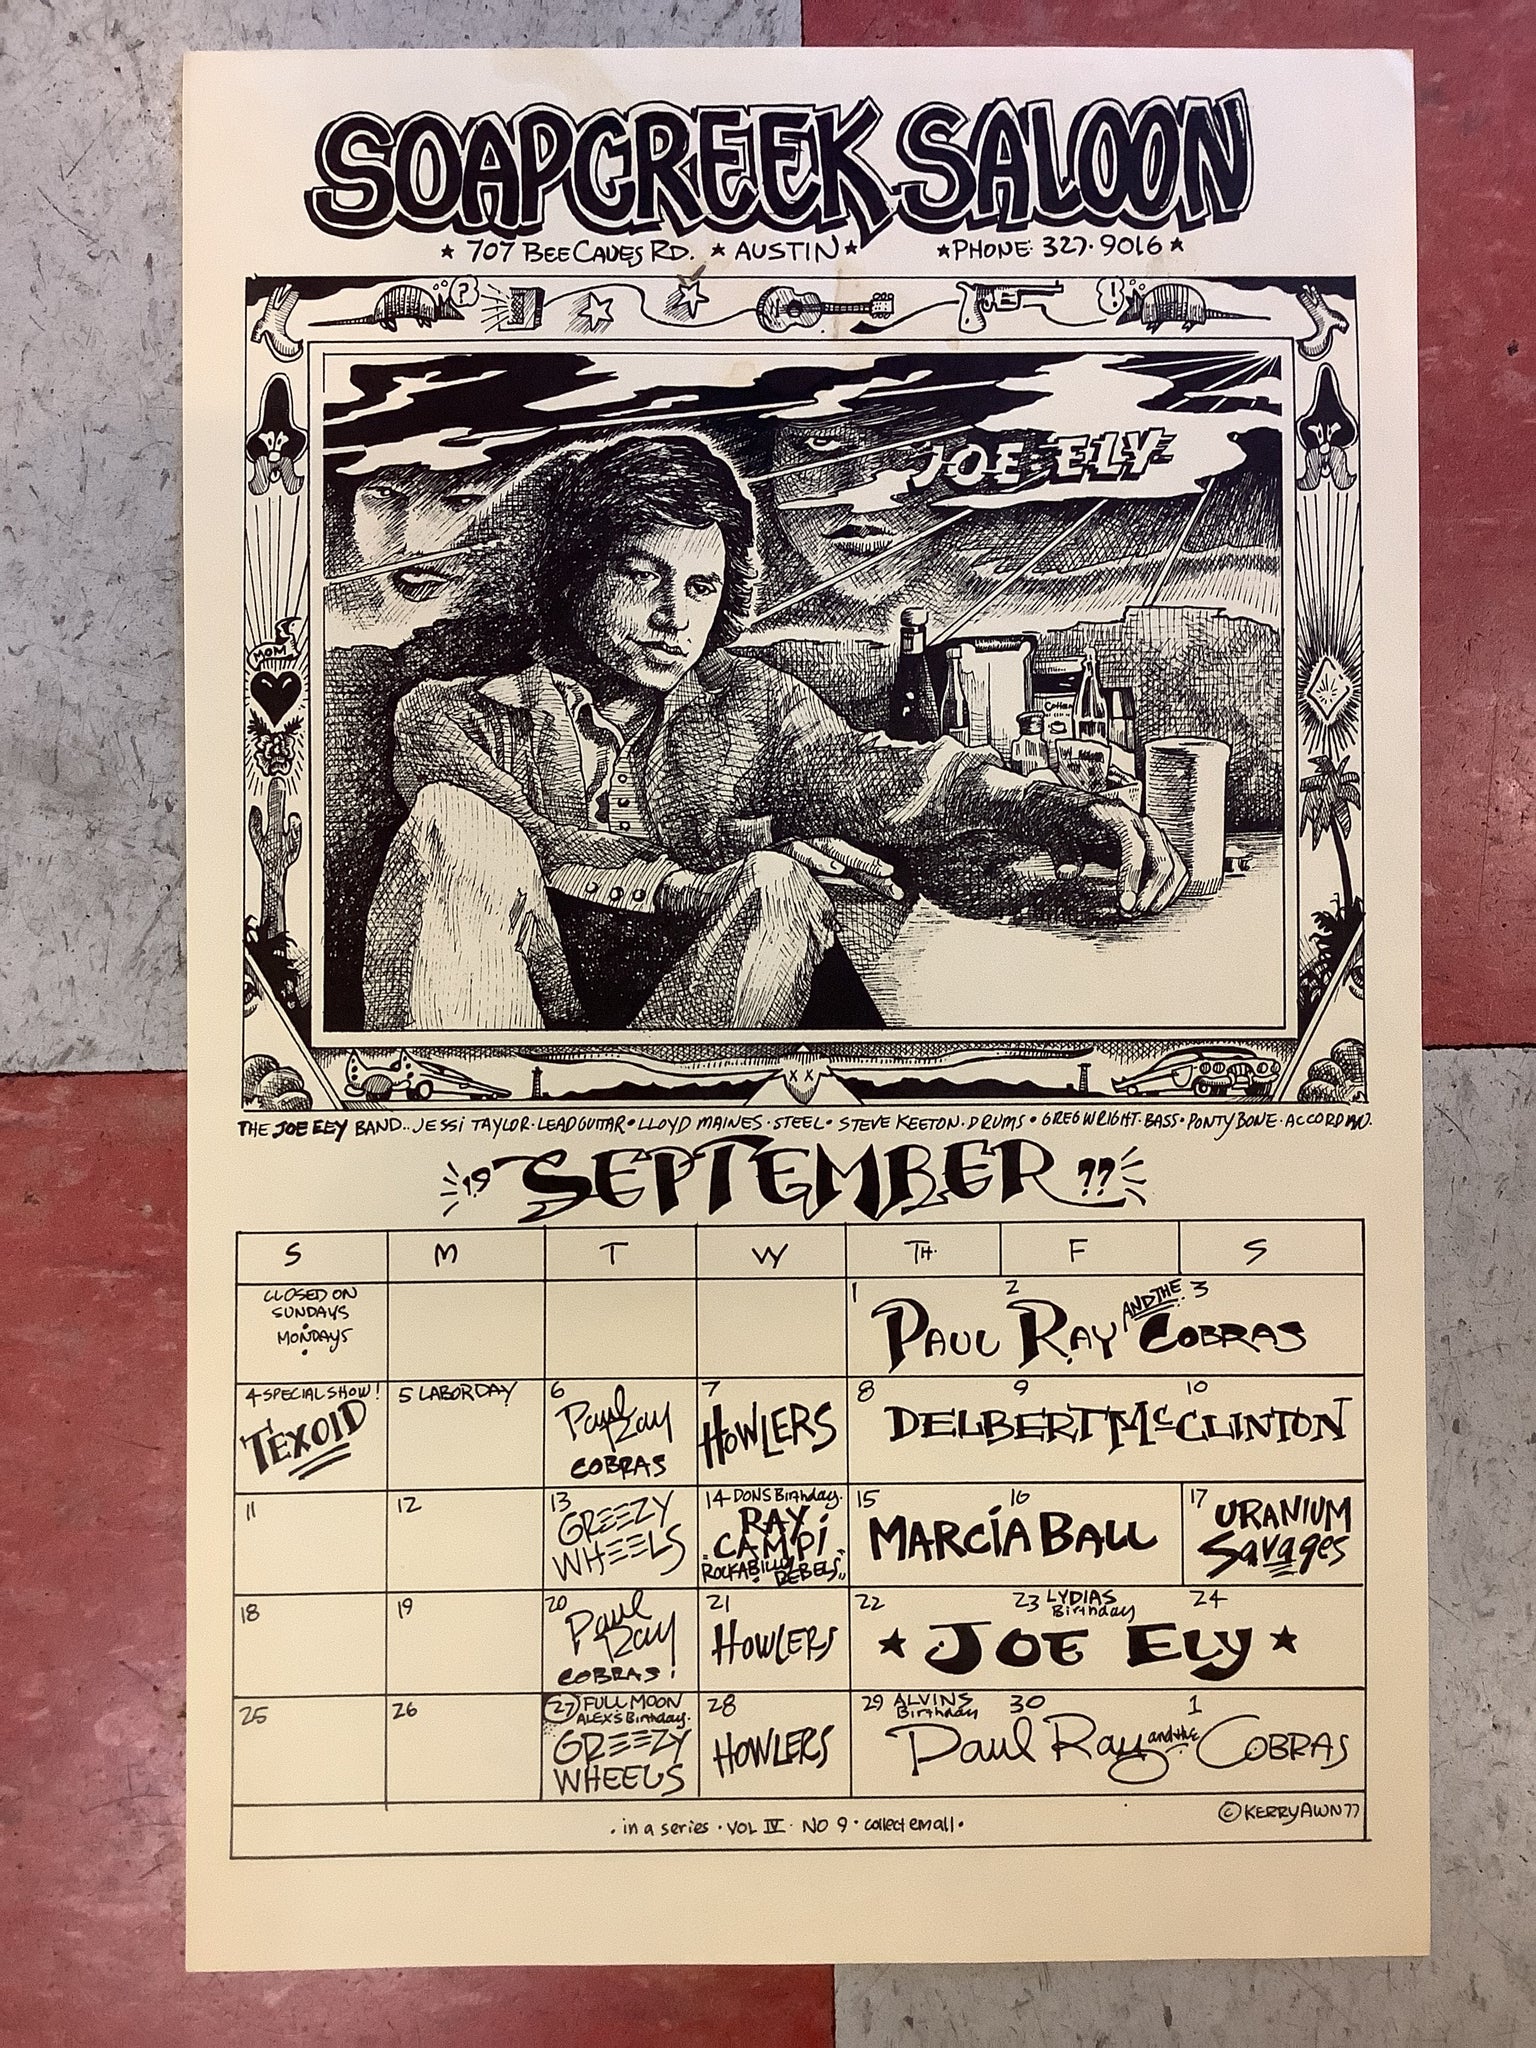 SOAPCREEK SALOON
★ 707 BEE CAVES RD. ★ AUSTIN ★ ★ PHONE: 327·9016 ★
?
!
JOE ELY
MOM
THE JOE ELY BAND.. JESSI TAYLOR·LEAD GUITAR • LLOYD MAINES·STEEL • STEVE KEETON·DRUMS • GREG WRIGHT·BASS • PONTY BONE·ACCORDIAN.
19 SEPTEMBER 77
S M T W TH. F S
CLOSED ON
SUNDAYS
MONDAYS
1 2 3
PAUL RAY AND THE COBRAS
4 SPECIAL SHOW!
TEXOID
5 LABOR DAY
6
Paul Ray
COBRAS
7
HOWLERS
8 9 10
DELBERT McCLINTON
11
12
13
GREEZY
WHEELS
14 DONS Birthday.
RAY
CAMPi
ROCKABILLY
REBELS
15 16
MARCiA BALL
17
URANIUM
Savages
18
19
20
Paul
Ray
COBRAS!
21
HOWLERS
22 23 LYDIAS Birthday 24
★ JOE ELY ★
25
26
27 FULL MOON
ALEX'S Birthday.
GREEZY
WHEELS
28
HOWLERS
29 ALVINS Birthday 30 1
Paul Ray and the COBRAS
© KERRY AWN 77
· in a series · VOL IV · NO 9 · collect em all ·